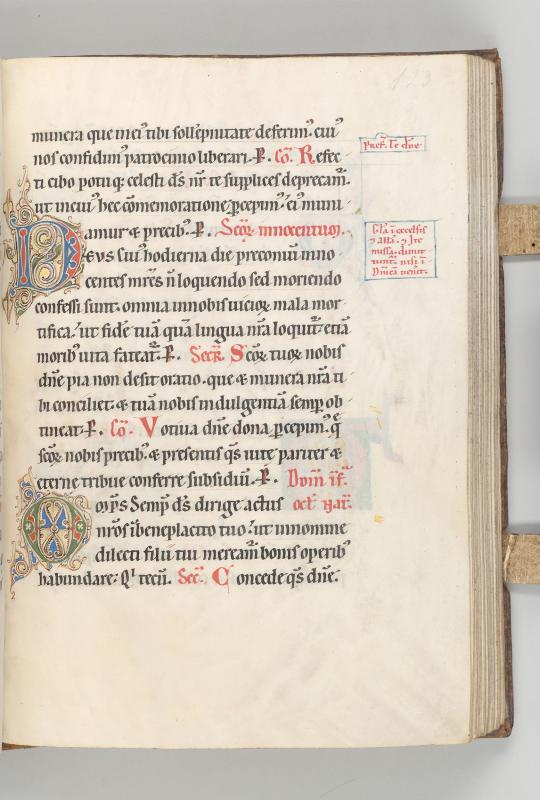 123
munera que in ei⁹ tibi sollēpnitate deferim⁹. cui⁹
nos confidim⁹ patrocinio liberari. P. Cō. Refec
ti cibo potuq; celesti d̄s n̄r te supplices deprecam̄.
ut in cui⁹ hec cōmemoratione p̄cepim⁹. ei⁹ muni
amur & precib⁹. P. Sc̄oꝝ innocentum.
DEVS cui⁹ hodierna die preconiū inno
centes mr̄es n̄ loquendo sed moriendo
confessi sunt. omnia in nobis uicioꝝ mala mor
tifica. ut fidē tuā quā lingua nr̄a loquit̄ etiā
morib⁹ uita fateat̄. P. Secr̄. Sc̄oꝝ tuoꝝ nobis
dn̄e pia non desit oratio. que & munera nr̄a ti
bi conciliet. & tuā nobis indulgentiā semp̄ ob
tineat. P. Cō. Votiua dn̄e dona p̄cepim⁹. q̄
sc̄oꝝ nobis precib⁹. & presentis q̄s uite pariter &
eterne tribue conferre subsidiū. P. Dom̄ inf̄.
Omp̄s semp̄ d̄s dirige actus oct̄ nat̄.
nr̄os in beneplacito tuo. ut in nomine
dilecti filii tui meream̄ bonis operib⁹
habundare. Qⁱ tecū. Sec̄. Concede q̄s dn̄e.
Pref. Te dn̄e
Gl̄a ī excelsis
⁊ all̄a. ⁊ Ite
missa. dimit
tunt̄. nisi ī
Dn̄ica uenit̄.